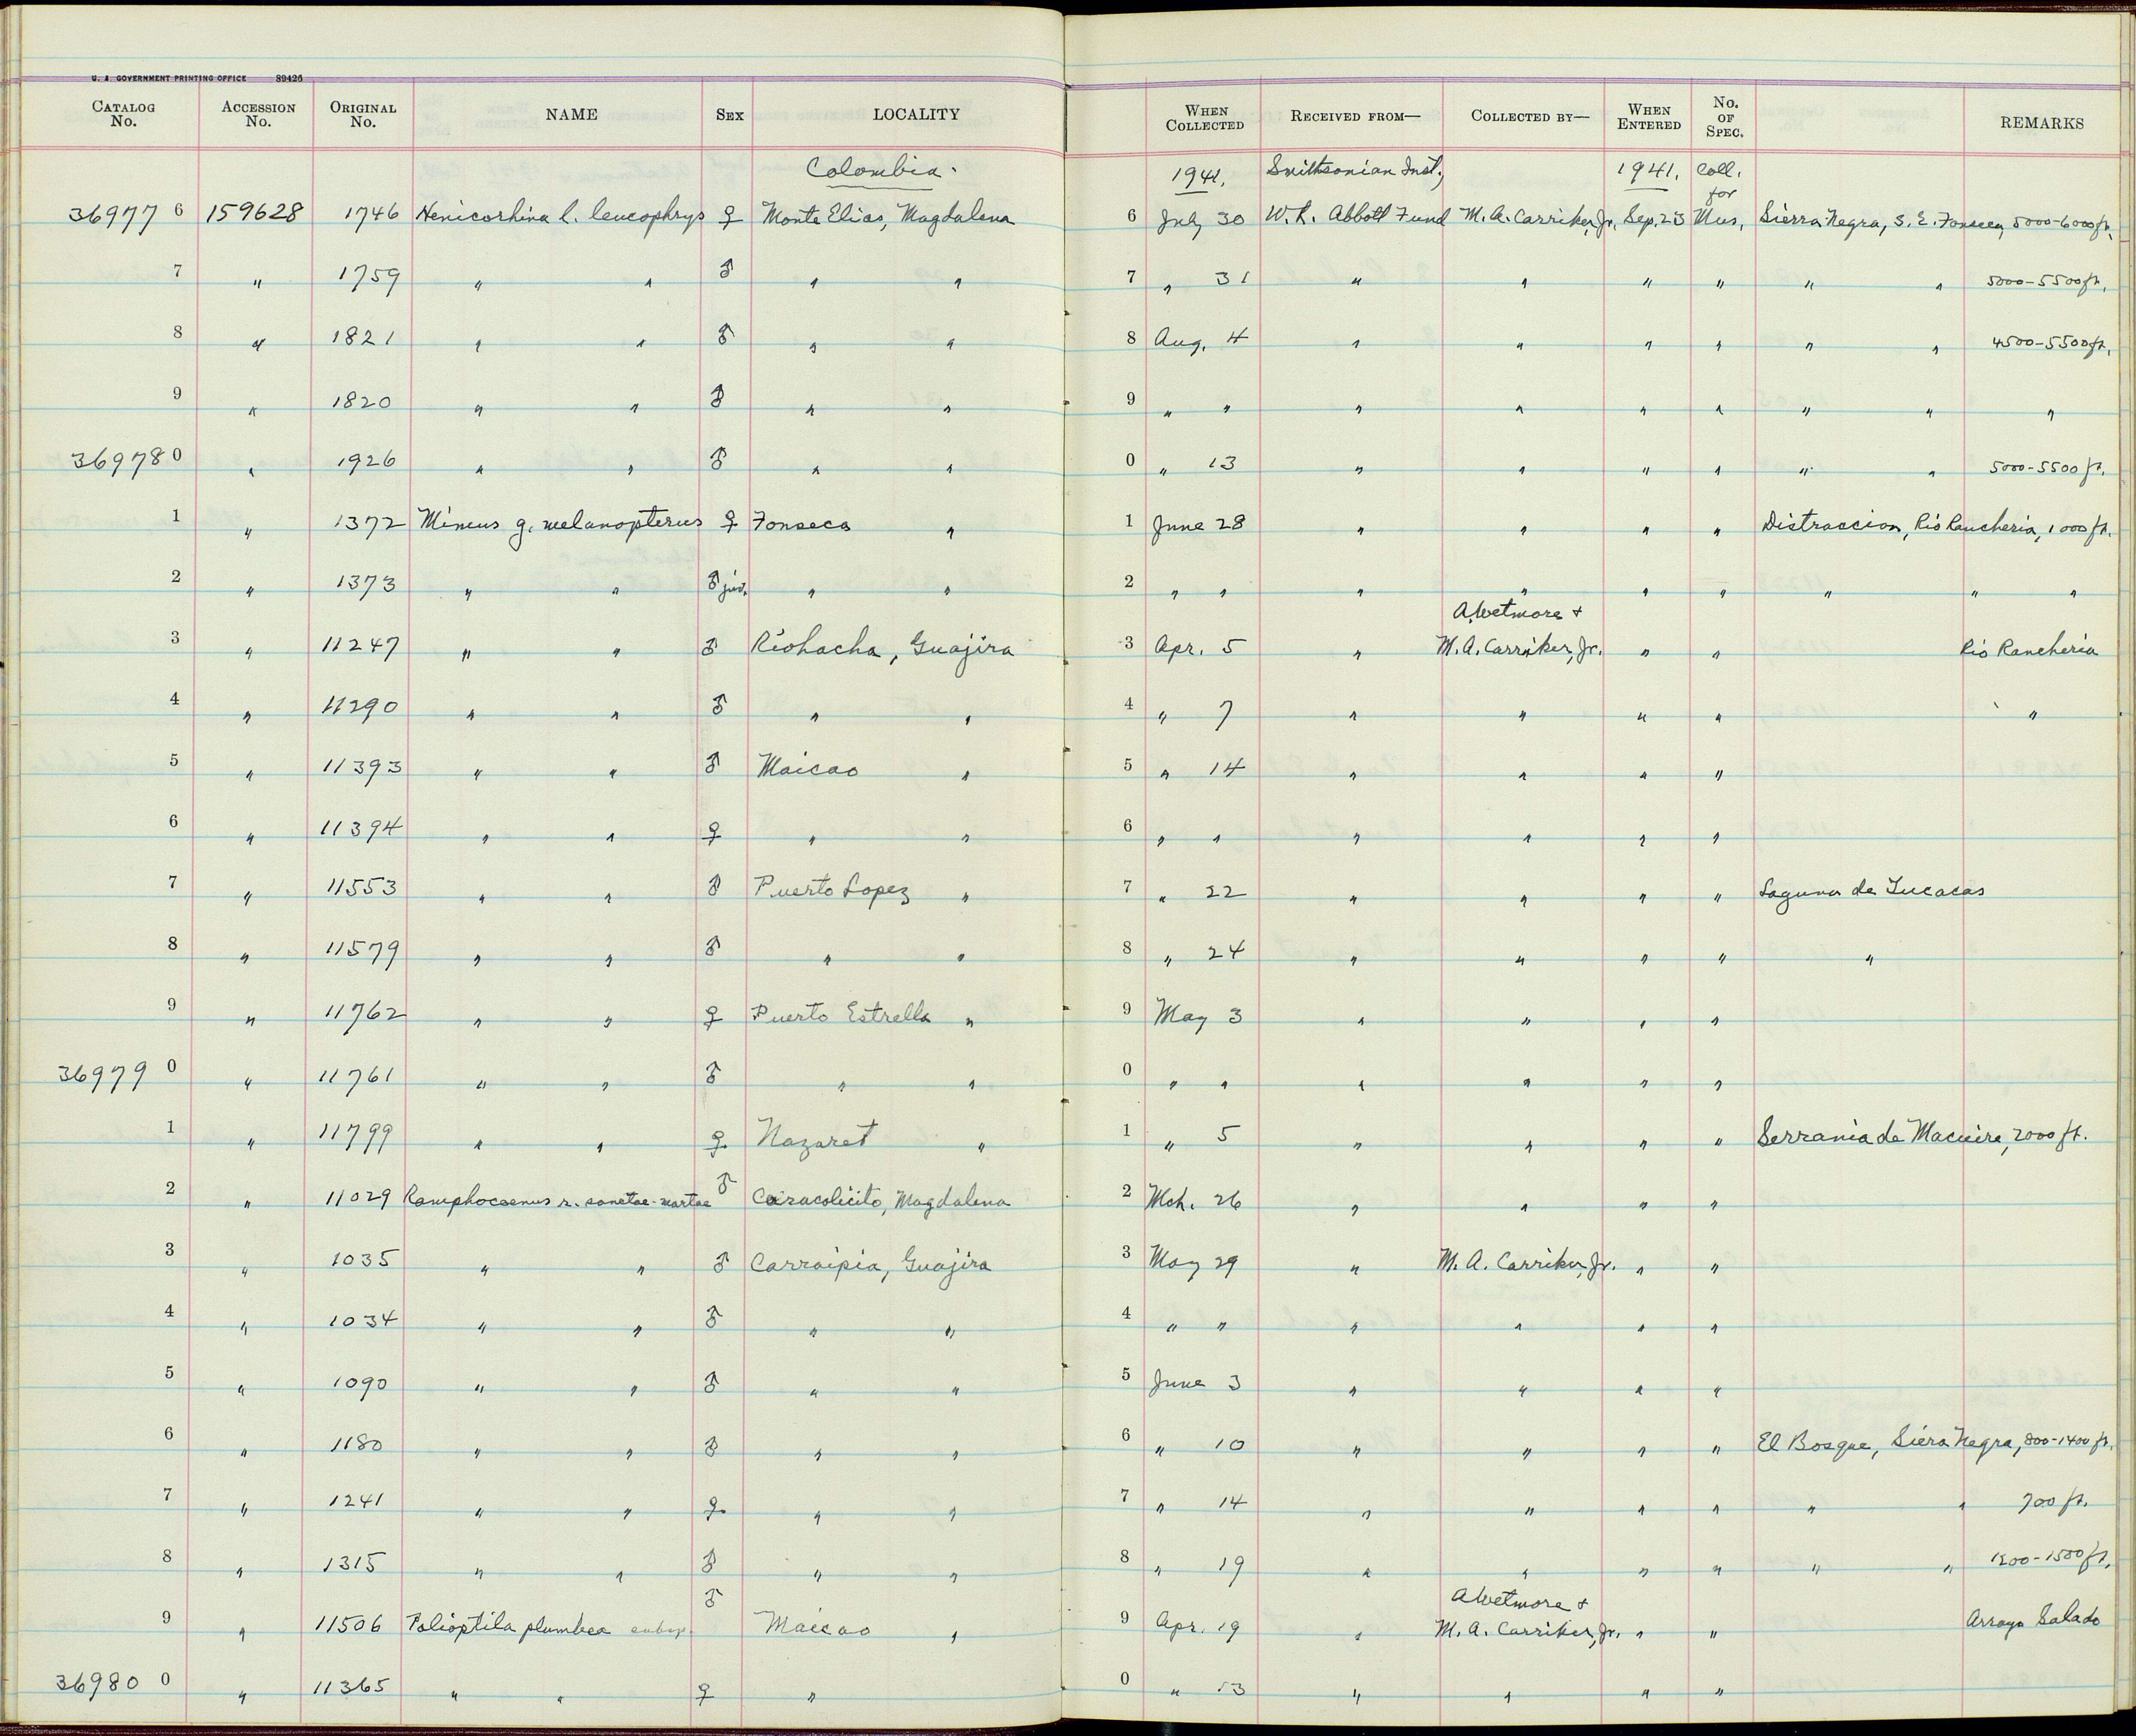 U. S. GOVERNMENT PRINTING OFFICE 89426
CATALOG No. ACCESSION No. ORIGINAL No. NAME SEX LOCALITY WHEN COLLECTED RECEIVED FROM— COLLECTED BY— WHEN ENTERED No. OF SPEC. REMARKS
Colombia. 1941. Smithsonian Inst., 1941. Coll. for
36977 6 159628 1746 Henicorhina l. leucophrys ♀ Monte Elias, Magdalena 6 July 30 W. L. Abbott Fund M. A. Carriker, Jr. Sep. 23 Mus. Sierra Negra, S. E. Fonseca, 5000-6000 ft.
7 " 1759 " " ♂ " " 7 " 31 " " " " " " 5000-5500 ft.
8 " 1821 " " ♂ " " 8 Aug. 4 " " " " " " 4500-5500 ft.
9 " 1820 " " ♂ " " 9 " " " " " " " " "
36978 0 " 1926 " " ♂ " " 0 " 13 " " " " " " 5000-5500 ft.
1 " 1372 Mimus g. melanopterus ♀ Fonseca " 1 June 28 " " " " Distraccion, Rio Rancheria, 1000 ft.
2 " 1373 " " ♂ juv. " " 2 " " " " " " " " "
A. Wetmore +
3 " 11247 " " ♂ Riohacha, Guajira 3 Apr. 5 " M. A. Carriker, Jr. " " Rio Rancheria
4 " 11290 " " ♂ " " 4 " 7 " " " " "
5 " 11393 " " ♂ Maicao " 5 " 14 " " " "
6 " 11394 " " ♀ " " 6 " " " " " "
7 " 11553 " " ♂ Puerto Lopez " 7 " 22 " " " " Laguna de Tucacas
8 " 11579 " " ♂ " " 8 " 24 " " " " "
9 " 11762 " " ♀ Puerto Estrella " 9 May 3 " " " "
36979 0 " 11761 " " ♂ " " 0 " " " " " "
1 " 11799 " " ♀ Nazaret " 1 " 5 " " " " Serrania de Macuire, 2000 ft.
2 " 11029 Ramphocaenus r. sanctae-martae ♂ Caracolicito, Magdalena 2 Mch. 26 " " " "
3 " 1035 " " ♂ Carraipia, Guajira 3 May 29 " M. A. Carriker, Jr. " "
4 " 1034 " " ♂ " " 4 " " " " " "
5 " 1090 " " ♂ " " 5 June 3 " " " "
6 " 1180 " " ♂ " " 6 " 10 " " " " El Bosque, Siera Negra, 800-1400 ft.
7 " 1241 " " ♀ " " 7 " 14 " " " " " " 700 ft.
8 " 1315 " " ♂ " " 8 " 19 " " " " " " 1200-1500 ft.
A. Wetmore +
9 " 11506 Polioptila plumbea subsp. ♂ Maicao " 9 Apr. 19 " M. A. Carriker, Jr. " " Arroyo Salado
36980 0 " 11365 " " ♀ " 0 " 13 " " " "